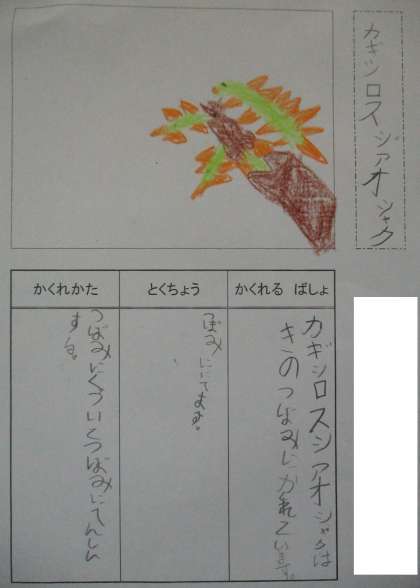 カギシロスジアオシャク
かくれる ばしょ
カギシロスジアオシャクは
きのつぼみにかれています。
とくちょう
つぼみににてます。
かくれかた
つぼみにくっついてつぼみにてんしん
する。